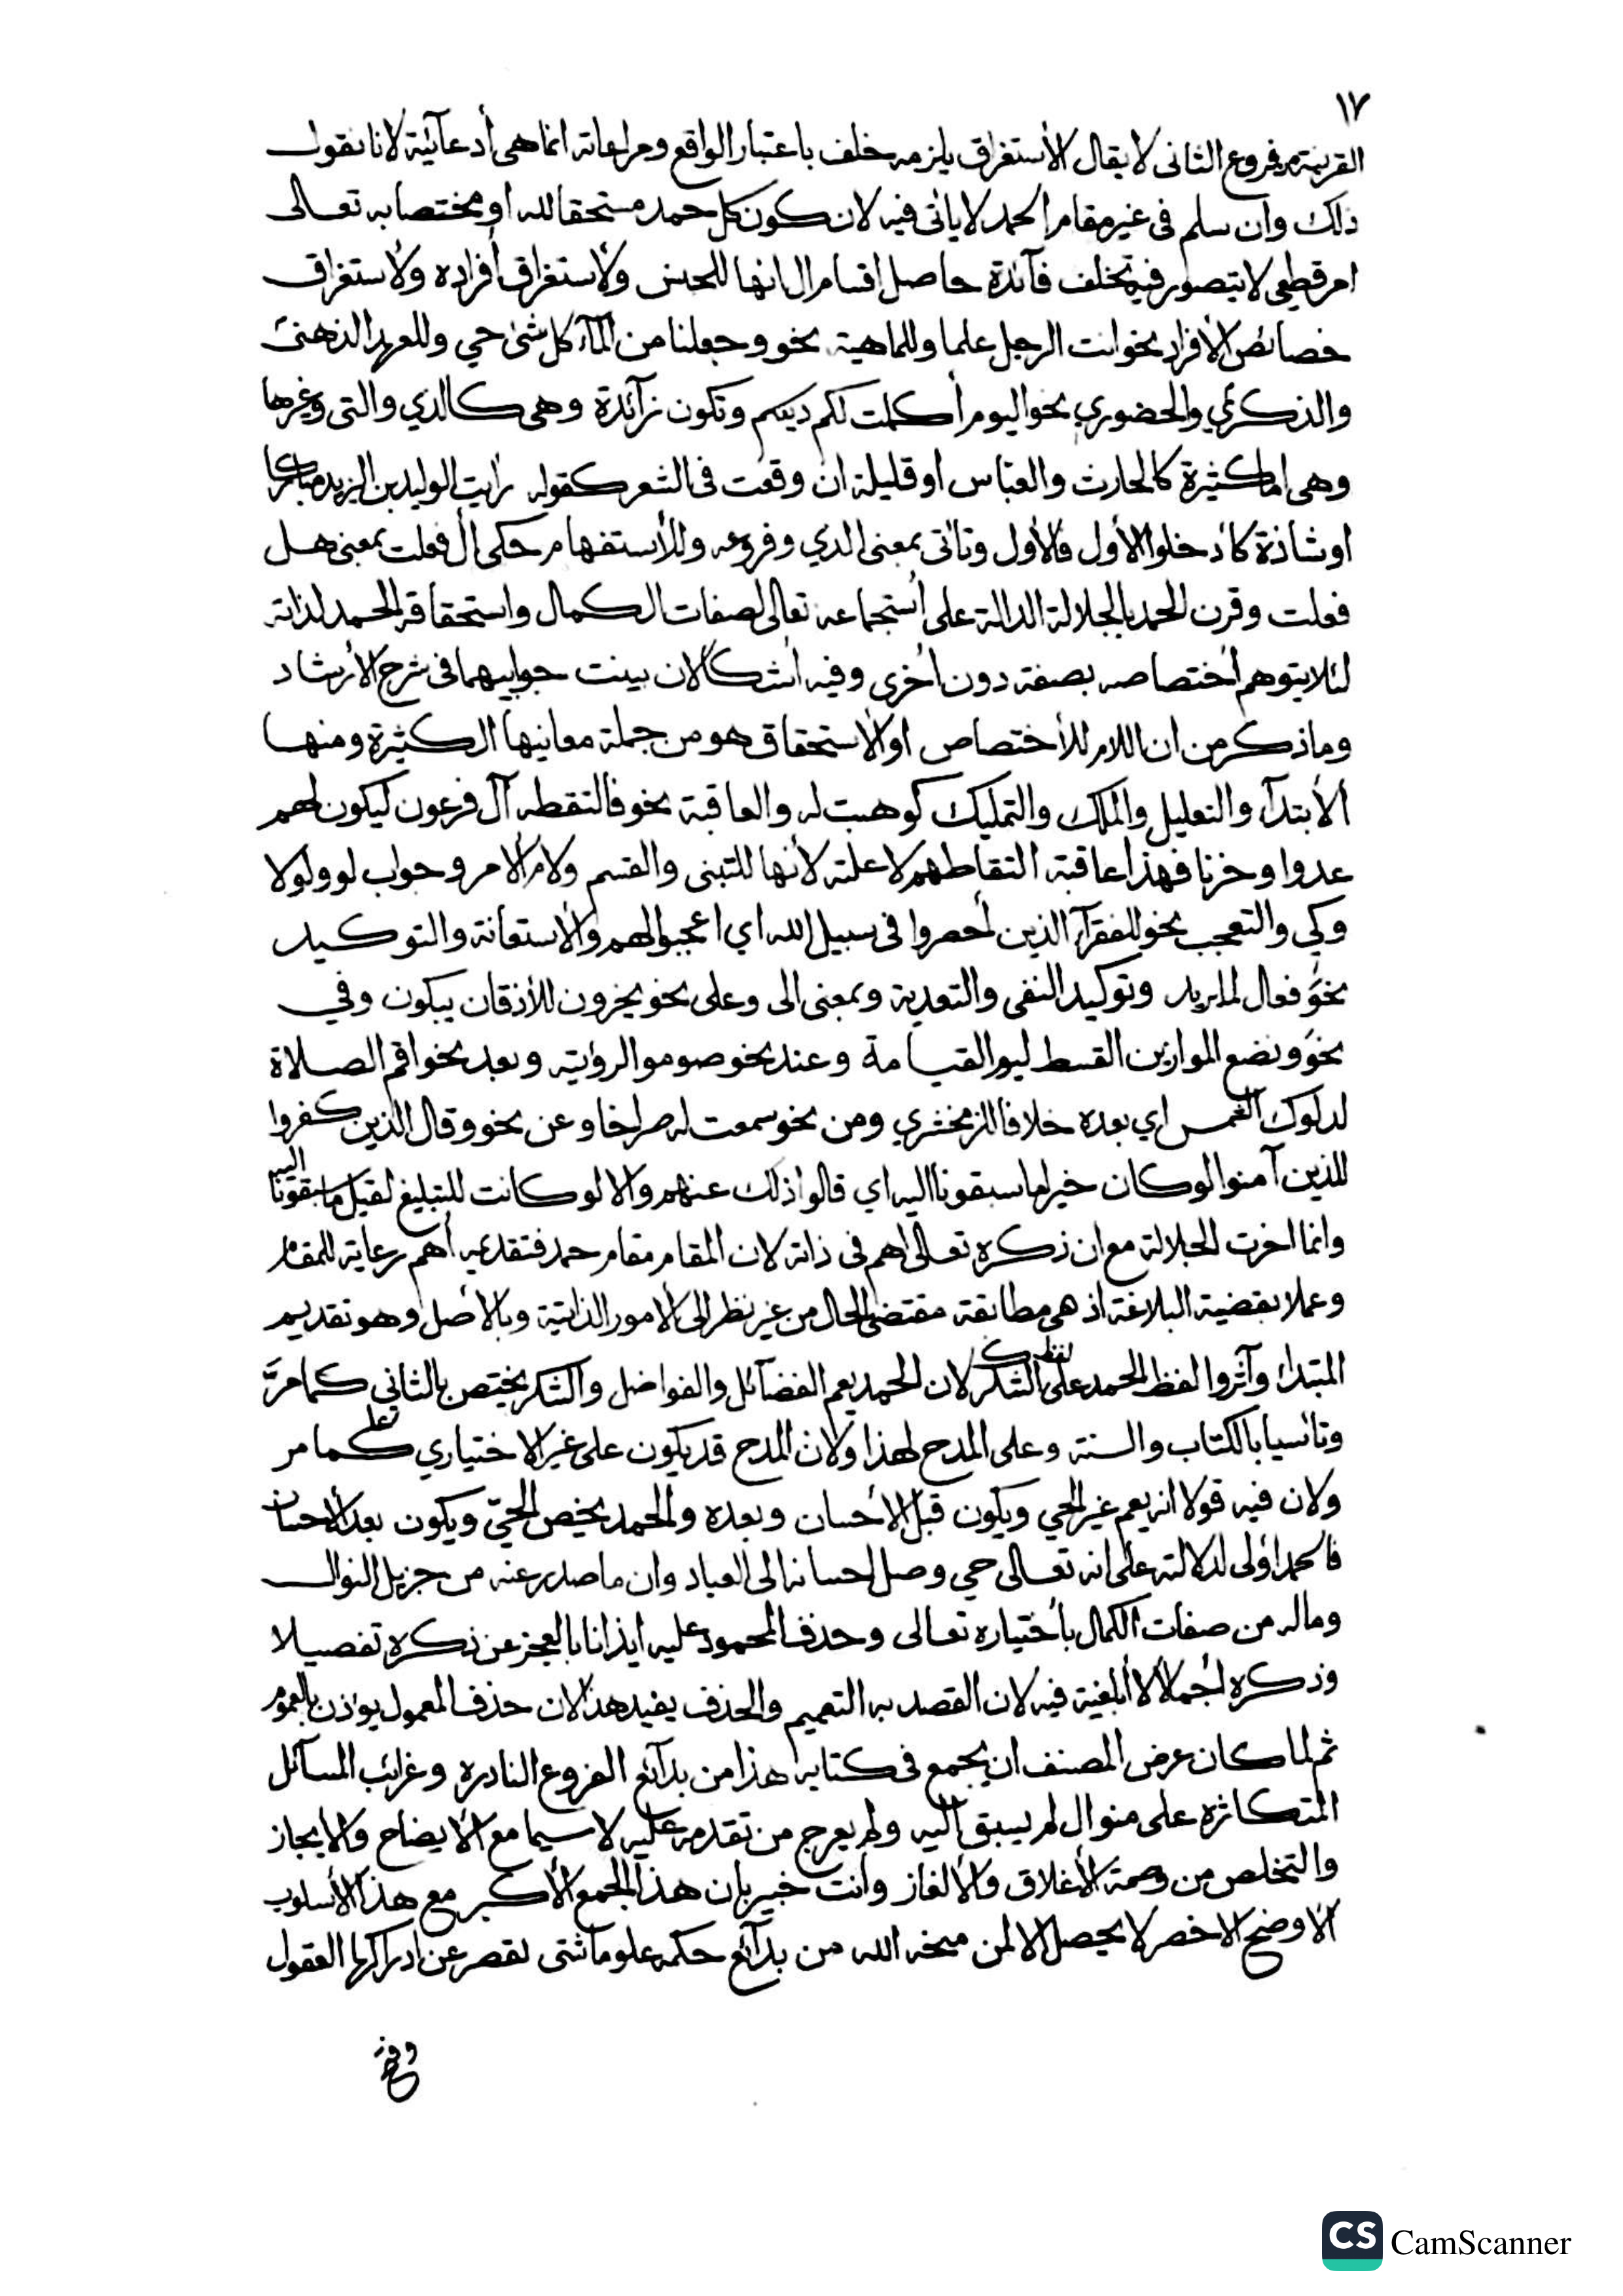 ١٧
القرينة من فروع الثاني لا يقال الأستغراق يلزمه خلف باعتبار الواقع ومراعاته انما هي أدعآئية لانا نقول
ذلك وان سلم في غير مقام الحمد لا ياتى فيه لان كون كل حمد مستحقا لله او مختصا به تعالى
امر قطعي لا يتصور فيه تخلف فآئدة حاصل اقسام ال انها للجنس ولأستغراق أفراده ولأستغراق
خصائص الأفراد نحو انت الرجل علما وللماهية نحو وجعلنا من المآء كل شئ حي وللعهد الذهني
والذكري والحضوري نحو اليوم أكملت لكم دينكم وتكون زآئدة وهي كالذي والتي وغيرها
وهي اما كثيرة كالحارث والعباس او قليلة ان وقعت في الشعر كقوله رايت الوليد بن اليزيد مباركا
او شاذة كادخلوا الأول فالأول وتأتي بمعنى الذي وفروعه وللأستفهام حكى أل فعلت بمعنى هل
فعلت وقرن الحمد بالجلالة الدالة على أستجماعه تعالى لصفات الكمال واستحقاقه الحمد لذاته
لئلا يتوهم أختصاصه بصفة دون أخرى وفيه أشكالان بينت جوابيهما في شرح الأرشاد
وما ذكر من ان اللام للأختصاص او الأستحقاق هو من جملة معانيها الكثيرة ومنها
الأبتدآء والتعليل والملك والتمليك كوهبت له والعاقبة نحو فالتقطه آل فرعون ليكون لهم
عدوا وحزنا فهذا عاقبة التقاطهم لا علته لأنها للتبنى والقسم ولام الأمر وجواب لو ولولا
وكي والتعجب نحو للفقرآء الذين أحصروا في سبيل الله اي اعجبوا لهم والأستعانة والتوكيد
نحو فعال لما يريد وتوكيد النفى والتعدية وبمعنى الى وعلى نحو يخرون للأذقان يبكون وفي
نحو ونضع الموازين القسط ليوم القيامة وعند نحو صوموا لرؤيته وبعد نحو اقم الصلاة
لدلوك الشمس اي بعده خلافا للزمخشري ومن نحو سمعت له صراخا وعن نحو وقال الذين كفروا
للذين آمنوا لو كان خيرا ما سبقونا اليه اي قالوا ذلك عنهم والا لو كانت للتبليغ لقيل ما سبقتونا اليه
وانما اخرت الجلالة مع ان ذكره تعالى اهم في ذاته لان المقام مقام حمد فتقديمه أهم رعاية للمقام
وعملا بقضية البلاغة اذ هي مطابقة مقتضى الحال من غير نظر الى الأمور الذاتية وبالأصل وهو تقديم
المبتدا وآثروا لفظ الحمد على لفظ الشكر لان الحمد يعم الفضآئل والفواضل والشكر يختص بالثاني كما مرَّ
وتأسيا بالكتاب والسنة وعلى المدح لهذا ولان المدح قد يكون على غير الاختياري على ما مر
ولان فيه قولا انه يعم غير الحي ويكون قبل الأحسان وبعده والحمد يخص الحيّ ويكون بعد الأحسان
فالحمد اولى لدلالته على انه تعالى حي وصل احسانه الى العباد وان ما صدر عنه من جزيل النوال
وماله من صفات الكمال بأختياره تعالى وحذف المحمود عليه ايذانا بالعجز عن ذكره تفصيلا
وذكره أجمالا لا أبلغية فيه لان القصد به التعميم والحذف يفيد هذا لان حذف المعمول يوذن بالعموم
ثم لما كان غرض المصنف ان يجمع في كتابه هذا من بدآئع الفروع النادره وغرائب المسآئل
المتكاثره على منوال لم يسبق اليه ولم يعرج من تقدمه عليه لا سيما مع الأيضاح والأيجاز
والتخلص من وصمة الأغلاق والألغاز وانت خبير بان هذا الجمع الأكبر مع هذا الأسلوب
الأوضح الاخصر لا يحصل الا لمن منحه الله من بدآئع حكمه علوما شتى تقصر عن ادراكها العقول
CS CamScanner